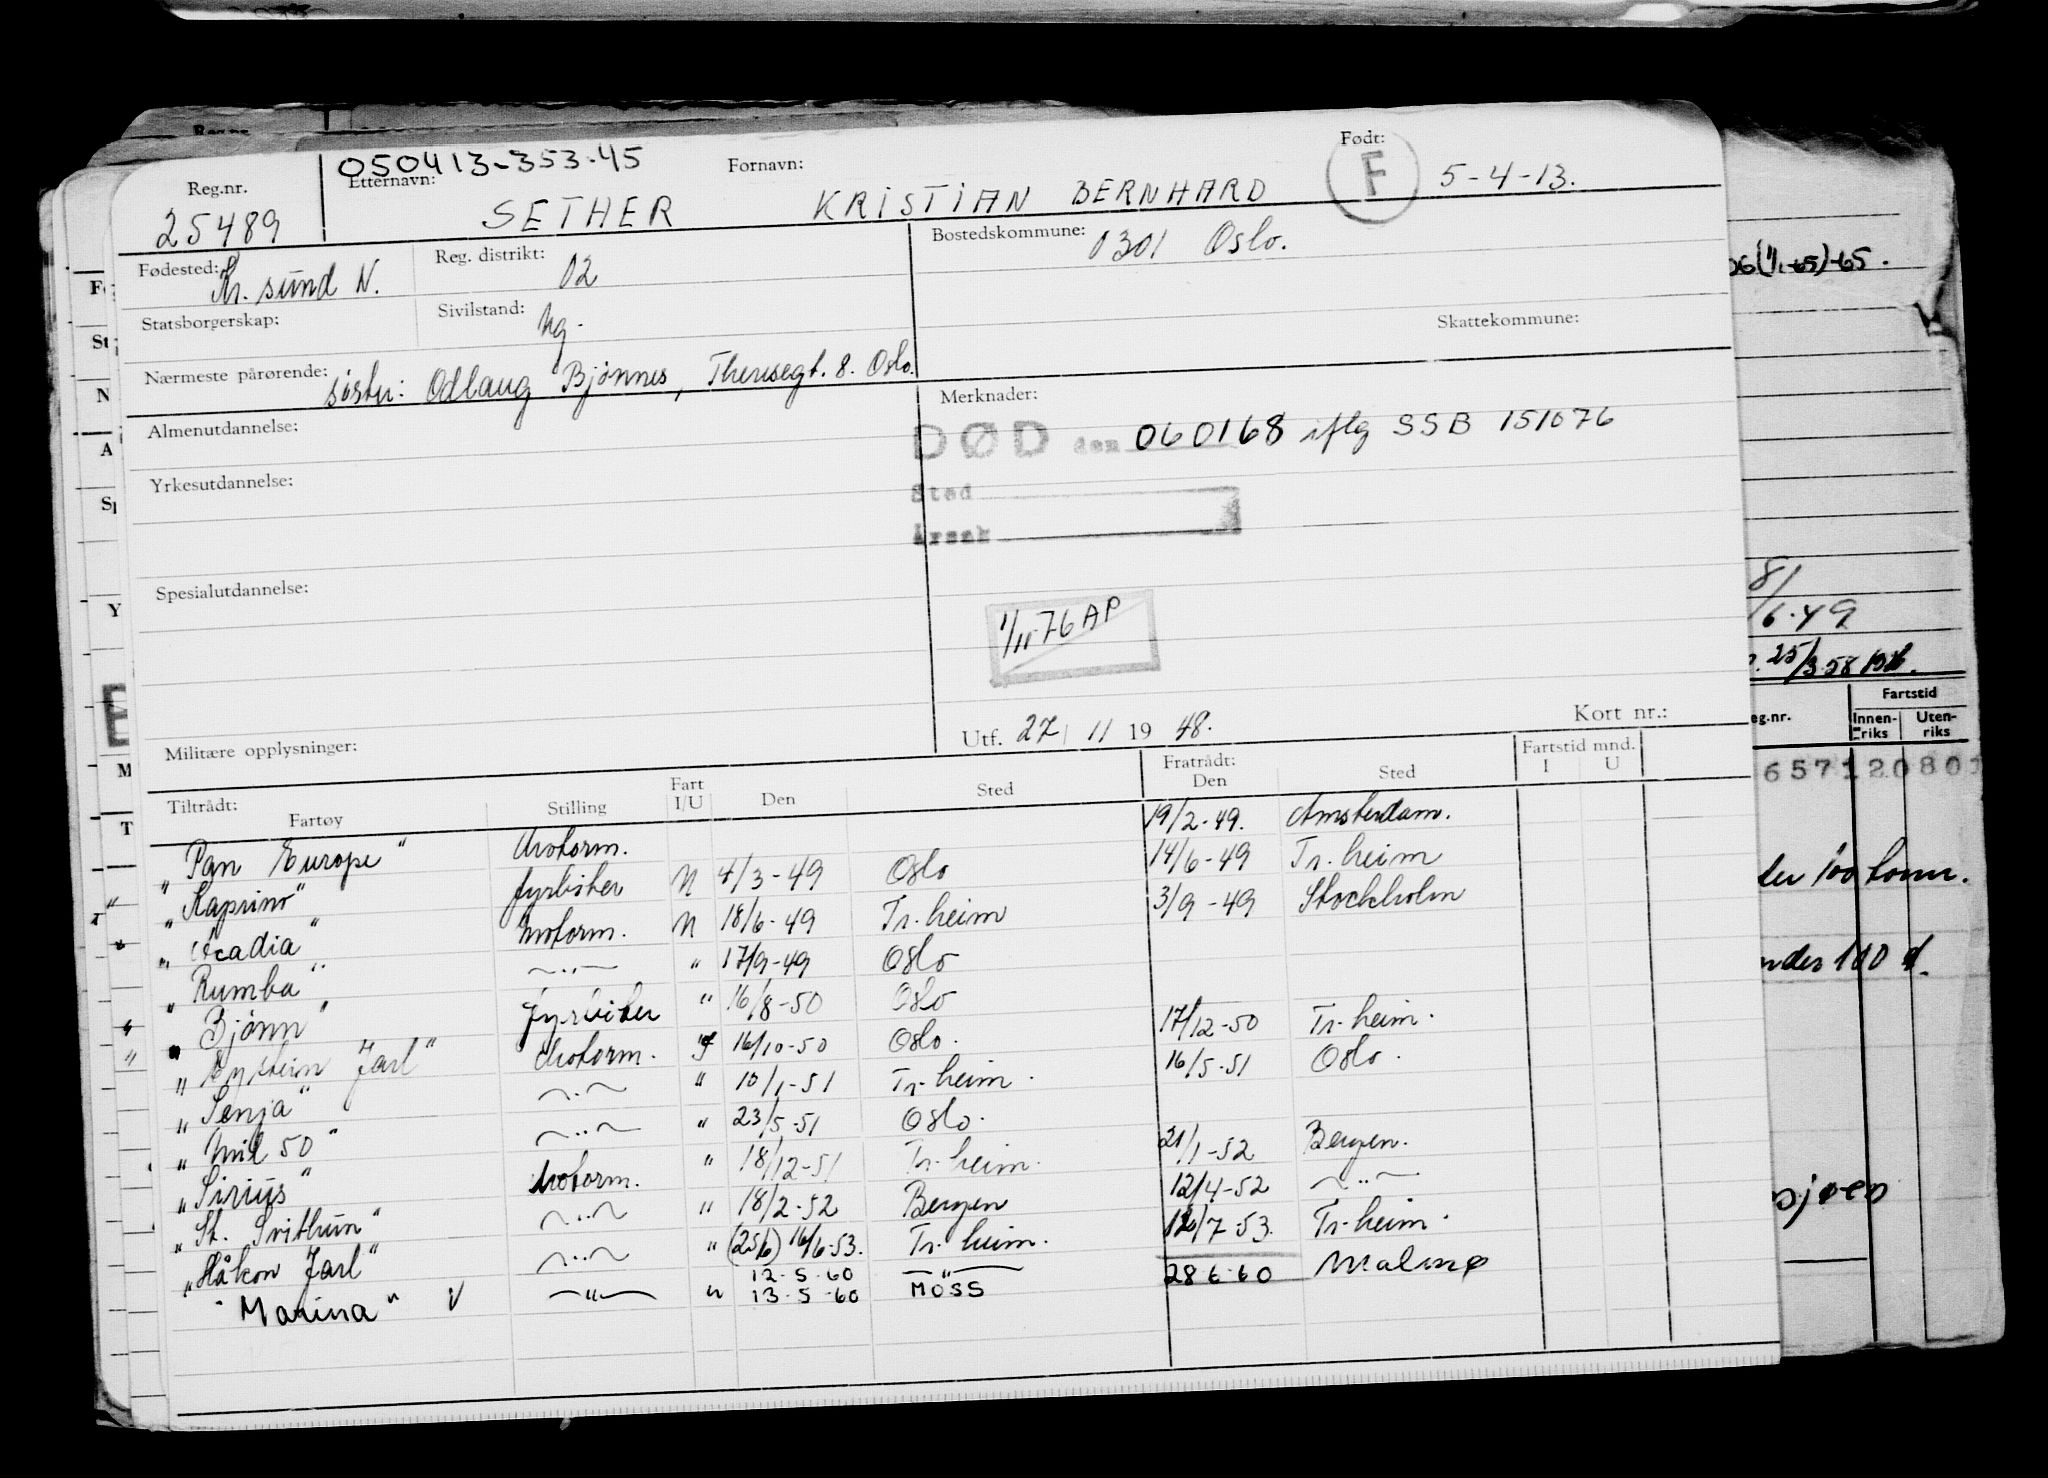 Reg.nr. 050413-353-45 Etternavn: Fornavn: Født:
25489 SETHER KRISTIAN BERNHARD F 5-4-13.
Fødested: Kr. sund N. Reg. distrikt: 02 Bostedskommune: 0301 Oslo.
Statsborgerskap: Sivilstand: ug. Skattekommune:
Nærmeste pårørende: søster: Odlaug Bjønnes, Theresegt. 8. Oslo.
Almenutdannelse: Merknader:
DØD den 060168 iflg SSB 151076
Yrkesutdannelse: Sted
Årsak
Spesialutdannelse:
1/11-76 AP
Militære opplysninger: Utf. 27/11 1948. Kort nr.:
Tiltrådt: Fartøy Stilling Fart I/U Den Sted Fratrådt: Den Sted Fartstid mnd. I U
"Pan Europe" Motorm. 19/2-49. Amsterdam.
"Kaprino" fyrbøter N 4/3-49 Oslo 14/6-49 Tr. heim
"Acadia" Motorm. N 18/6-49 Tr. heim 3/9-49 Stockholm
"Rumba" -"- " 17/9-49 Oslo
"Bjønn" fyrbøter " 16/8-50 Oslo
"Eystein Jarl" Motorm. " 16/10-50 Oslo. 17/12-50 Tr. heim.
"Senja" -"- " 10/1-51 Tr. heim. 16/5-51 Oslo.
"Mil 50" -"- " 23/5-51 Oslo.
"Sirius" Motorm. " 18/12-51 Tr. heim. 21/1-52 Bergen.
"St. Svithun" -"- " 18/2-52 Bergen 12/4-52 -"-
"Håkon Jarl" -"- " (25/6) 16/6-53. Tr. heim. /7-53. Tr. heim.
12-5-60 -"-
"Marina" V -"- " 13-5-60 MOSS 28 6-60 Malmø
(1/1-65)-65.
81
/6-49
25/3-58
eg.nr. Fartstid
Innenriks Utenriks
657120801
100 tonn.
100 t.
sjøen